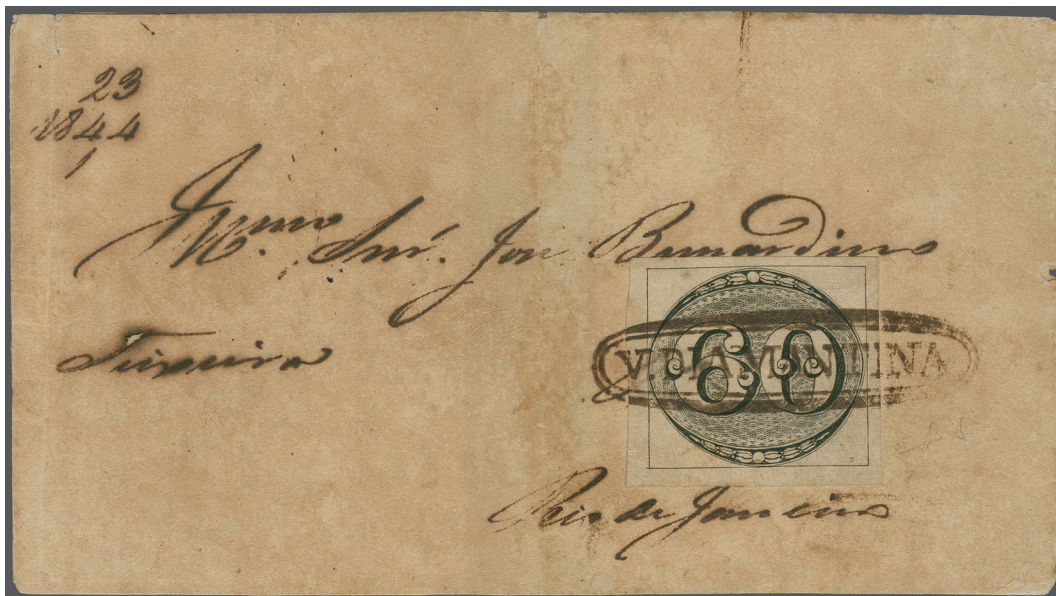 23
1844
1
Illmo. Snr. Joze Bernardino
Teixeira
V. DIAMANTINA
60
Rio de Janeiro